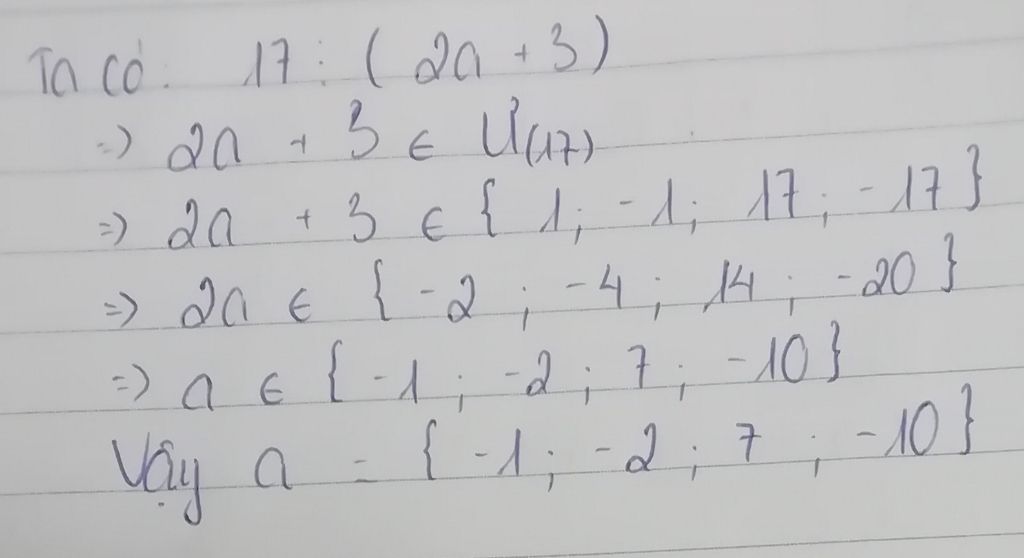 Ta có: 17 : ( 2a + 3 )
=> 2a + 3 ∈ Ư(17)
=> 2a + 3 ∈ { 1; -1; 17; -17 }
=> 2a ∈ { -2 ; -4 ; 14 ; -20 }
=> a ∈ { -1 ; -2 ; 7 ; -10 }
Vậy a = { -1 ; -2 ; 7 ; -10 }